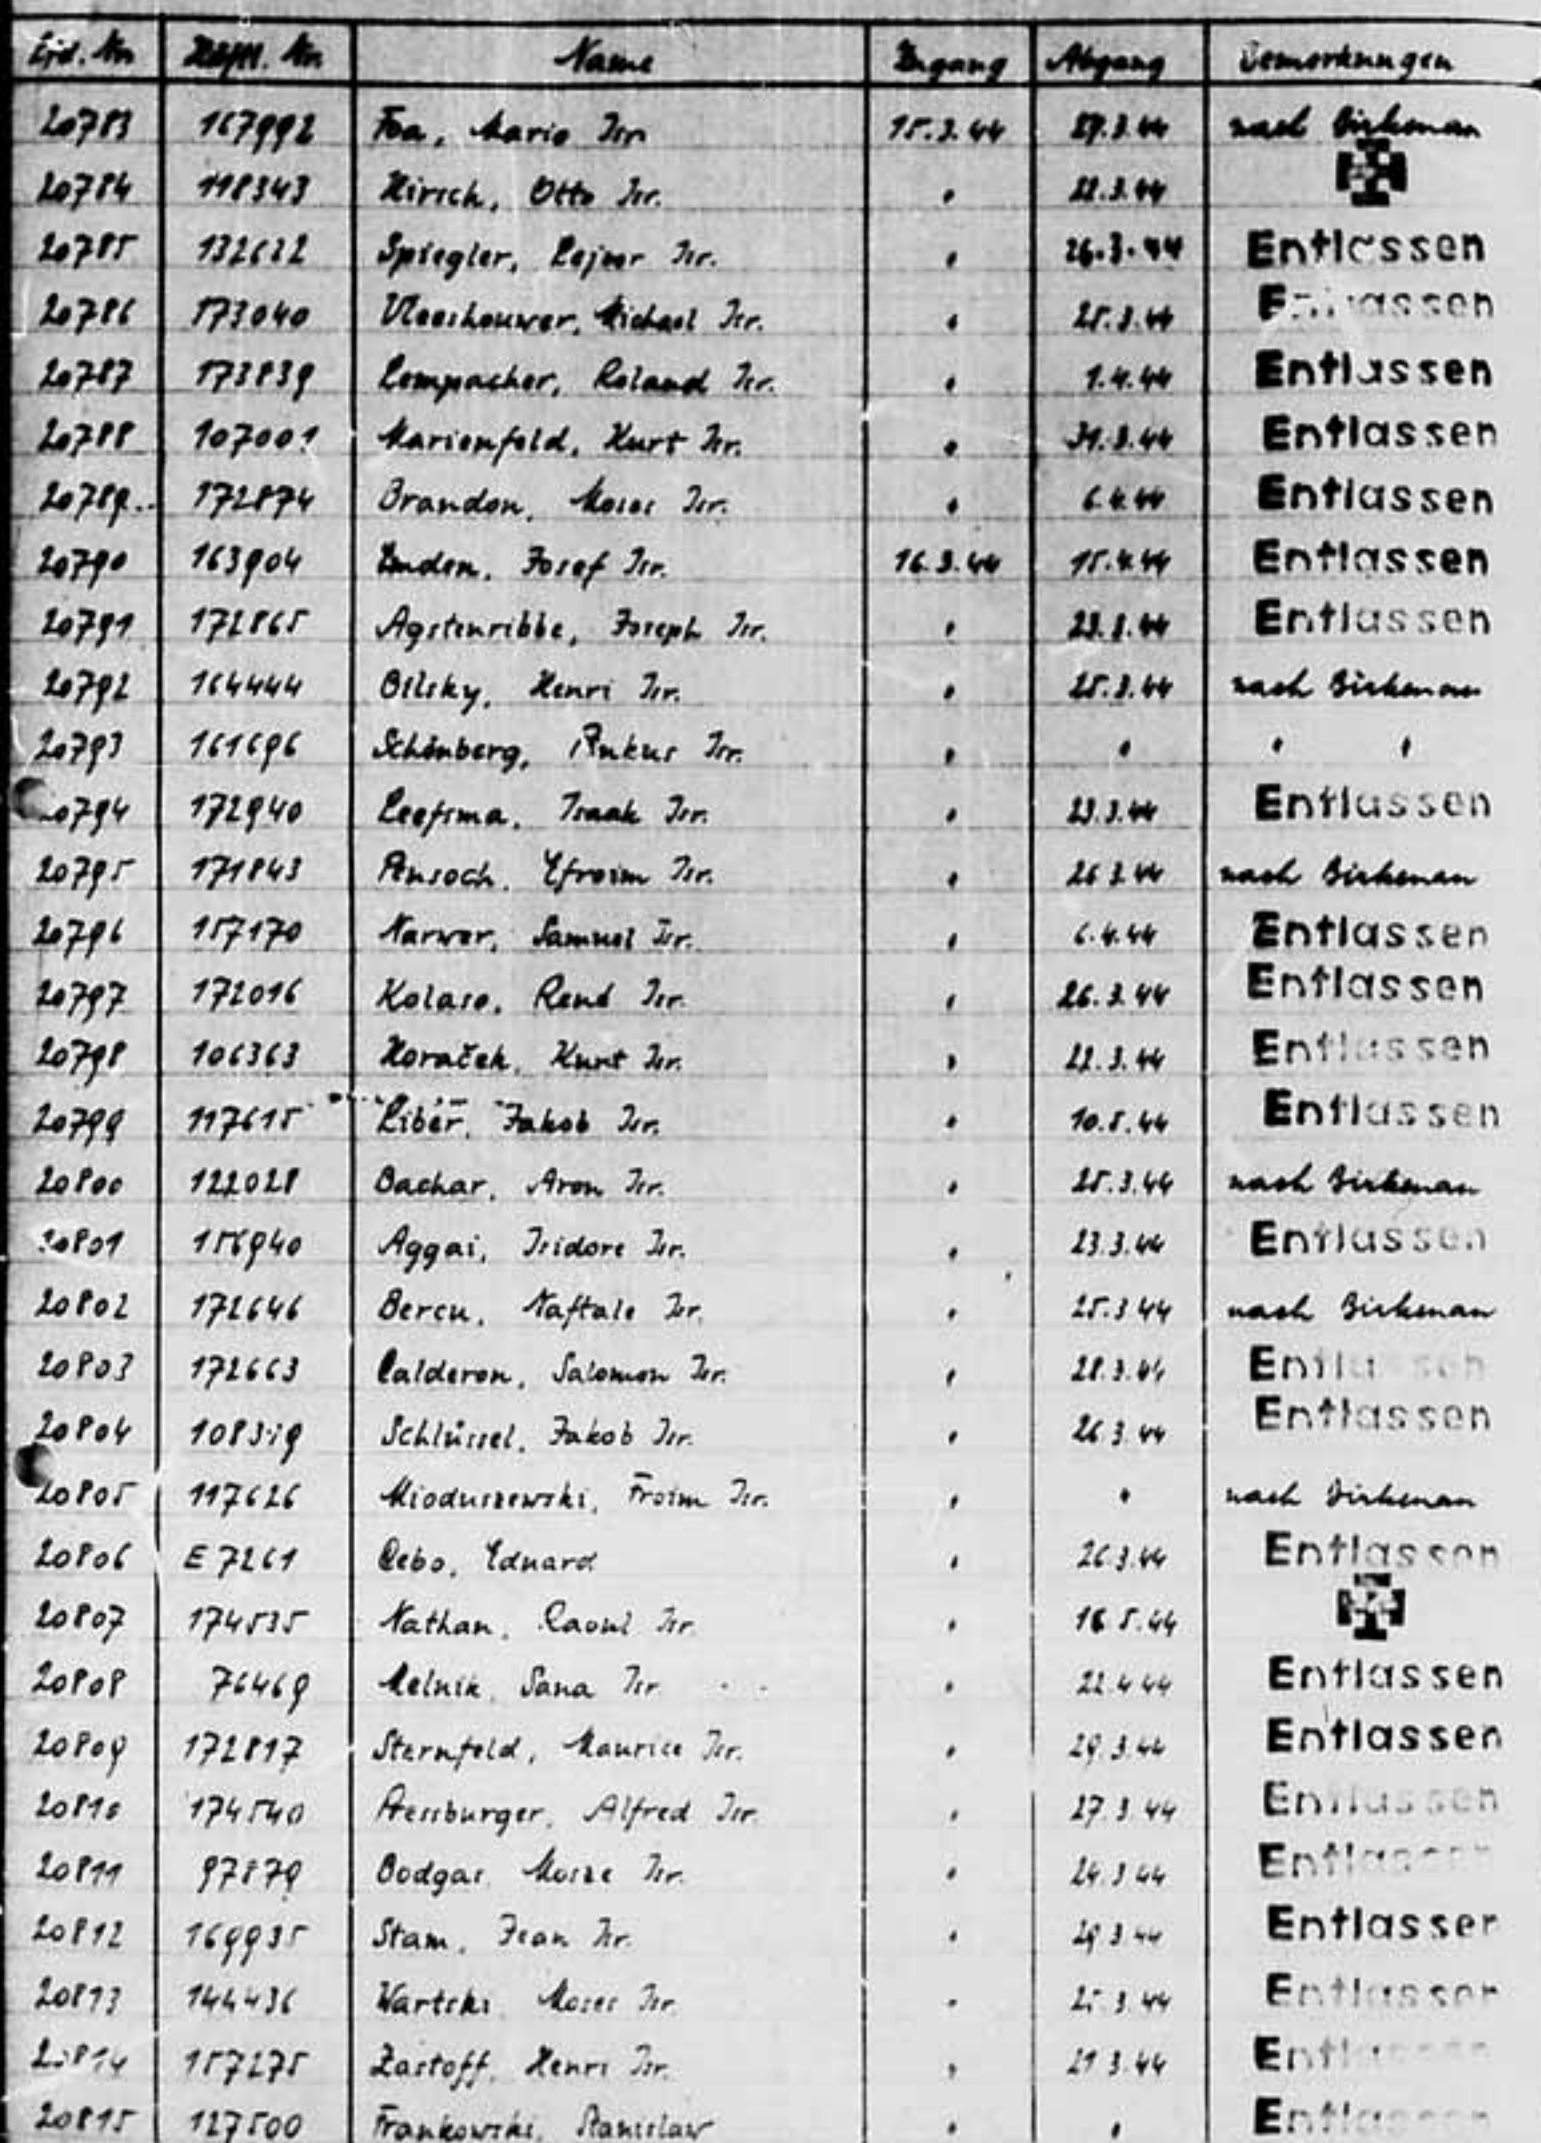 Lfd. Nr Häftl. Nr Name Zugang Abgang Bemerkungen
20783 167992 Foa, Mario Isr. 15.3.44 27.3.44 nach Birkenau
20784 118343 Hirsch, Otto Isr. " 22.3.44
20785 132622 Spiegler, Isr. " 26.3.44 Entlassen
20786 173040 Vleeshouwer, Michael Isr. " 25.3.44 Entlassen
20787 173839 Lempacher, Roland Isr. " 1.4.44 Entlassen
20788 107001 Marienfeld, Kurt Isr. " 31.3.44 Entlassen
20789 172874 Brandon, Moses Isr. " 6.4.44 Entlassen
20790 163904 Emden, Josef Isr. 16.3.44 15.4.44 Entlassen
20791 172865 Agstenribbe, Joseph Isr. " 23.3.44 Entlassen
20792 164444 Bilsky, Henri Isr. " 25.3.44 nach Birkenau
20793 161696 Schönberg, Pinkus Isr. " " " "
20794 172940 Leefsma, Isaak Isr. " 23.3.44 Entlassen
20795 171843 Efroim Isr. " 26.3.44 nach Birkenau
20796 157170 Narwer, Samuel Isr. " 6.4.44 Entlassen
20797 172016 Kolaso, René Isr. " 26.3.44 Entlassen
20798 106363 Horaček, Kurt Isr. " 22.3.44 Entlassen
20799 117615 Liber, Jakob Isr. " 10.5.44 Entlassen
20800 122028 Bachar, Aron Isr. " 25.3.44 nach Birkenau
20801 156940 Aggai, Isidore Isr. " 23.3.44 Entlassen
20802 172646 Bercu, Naftale Isr. " 25.3.44 nach Birkenau
20803 172663 Calderon, Salomon Isr. " 28.3.44 Entlassen
20804 Schlüssel, Jakob Isr. " 26.3.44 Entlassen
20805 117626 Mioduszewski, Froim Isr. " " nach Birkenau
20806 E 7261 Cebo, Eduard " 26.3.44 Entlassen
20807 174535 Nathan, Raoul Isr. " 16.5.44
20808 76469 Melnik, Sana Isr. " 22.4.44 Entlassen
20809 172817 Sternfeld, Maurice Isr. " 29.3.44 Entlassen
20810 174540 Pressburger, Alfred Isr. " 27.3.44 Entlassen
20811 97879 Bodgas, Mosze Isr. " 24.3.44 Entlassen
20812 169935 Stam, Jean Isr. " 29.3.44 Entlassen
20813 144436 Wartski, Moses Isr. " 25.3.44 Entlassen
20814 157275 Zastoff, Henri Isr. " 21.3.44 Entlassen
20815 127500 Frankowski, Stanislaw " " Entlassen